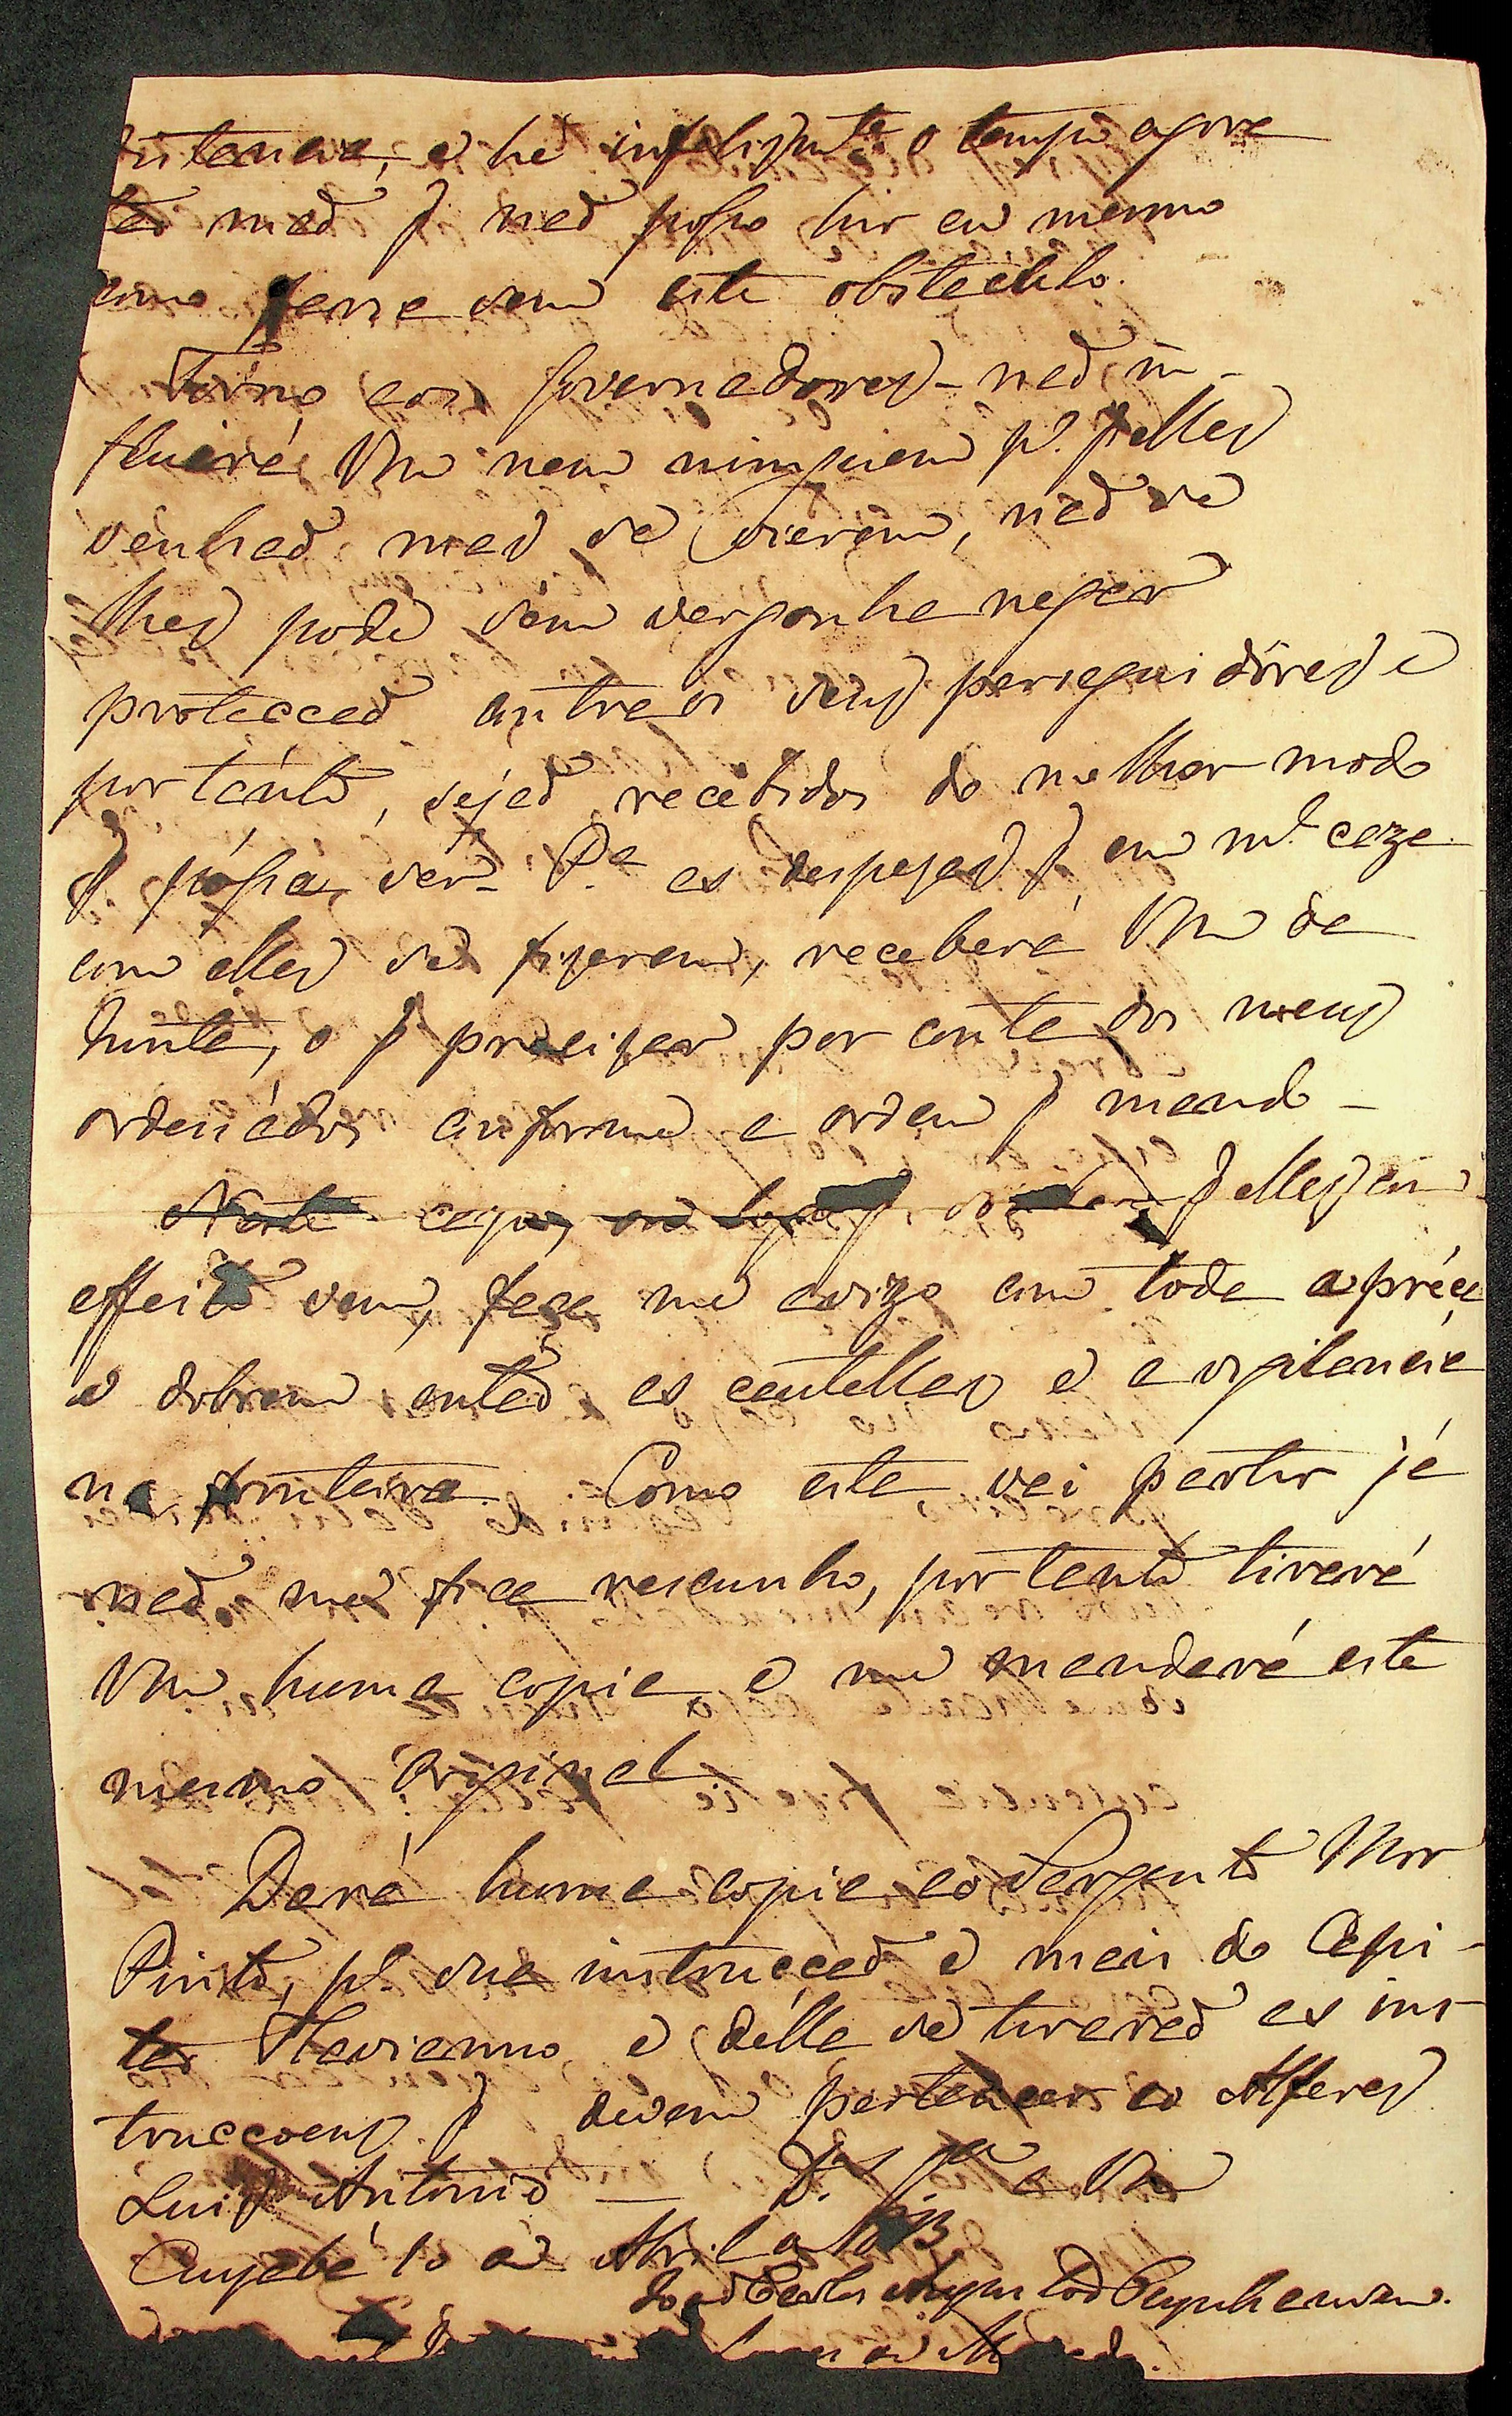 e he infelizmte o tempo agora
mas q̃ naõ posso hir eu mesmo
como faria sem este obstaculo.
Torno aos Governadores - naõ in-
fluirá Vm nem ninguem pa. q̃ elles
venhaõ, mas se vierem, naõ se
lhes pode sem vergonha negar
protecçaõ contra os seus perseguidores e
por tanto, sejaõ recebidos do melhor modo
q̃ possa ser. Pa. as despezas q̃ em ma. caza
com elles se fizerem, receberá Vm da
Junta, o q̃ precizar por conta dos meus
ordenados conforme a ordem q̃ mando -
Neste cazo, q̃ elles com
effeito vem, faça me avizo com toda a préça
e dobrem entaõ as cautellas e a vigilancia
na fronteira. Como este vai partir já
naõ me fica rascunho, por tanto tirará
Vm huma copia e me mandará este
mesmo original.
Dará huma copia ao Sargento Mor
Pinto, pa. sua instrucçaõ e mais do Capi-
tao Flavianno, e della se tiraraõ as ins-
trucçoens q̃ devem pertencer ao Alferes
Luis Antonio — Ds. gde a Vm
Cuyabá 10 de Abril de
Joaõ Carlos Augusto d'Oeynhausen.